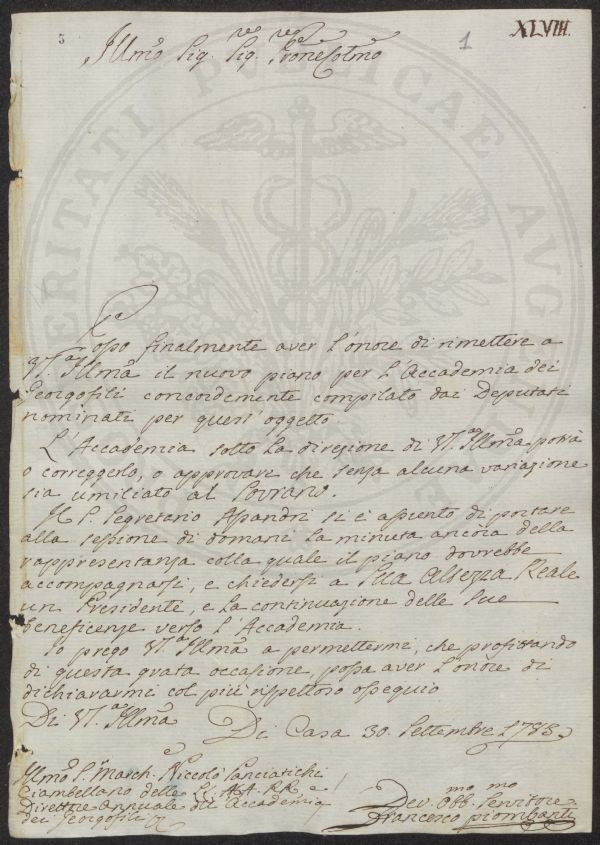 5
1
XLVIII.
Illmo Sig.re Sig.re Prone Colmo
Posso finalmente aver l'onore di rimettere a
VS. Illma il nuovo piano per l'Accademia dei
Georgofili concordemente compilato dai Deputati
nominati per quest'oggetto.
L'Accademia sotto la direzione di VS. Illma potrà
o correggerlo, o approvare che senza alcuna variazione
sia umiliato al Sovrano.
Il S. Segretario si è assunto di portare
alla sessione di domani la minuta ancora della
rappresentanza colla quale il piano dovrebbe
accompagnarsi, e chiedersi a Sua Altezza Reale
un Presidente, e la continuazione delle Sue
beneficenze verso l'Accademia.
Io prego VS. Illma a permettermi, che profittando
di questa grata occasione, possa aver l'onore di
dichiararmi col più rispettoso ossequio
Di VS. Illma
Di Casa 30. Settembre 1783.
Illmo S. March.e Niccolò Panciatichi
Ciambellano delle LL. AA. RR. e
Direttore annuale dell'Accademia
dei Georgofili
Dev.mo Obb.mo Servitore
Francesco Piombanti
VERITATI PUBLICAE